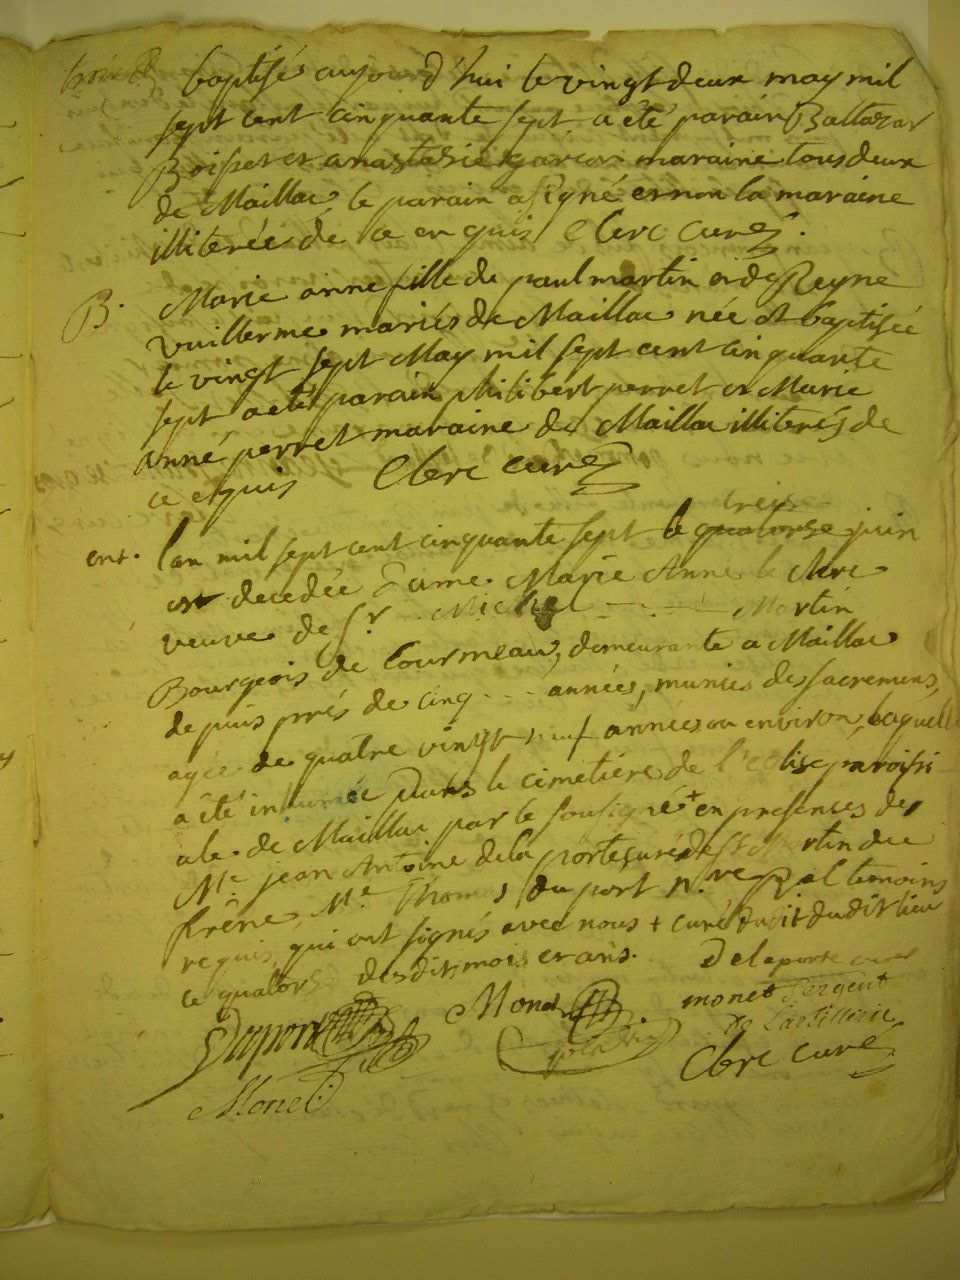 baptisés aujourd'hui le vingt deux may mil
sept cent cinquante sept a été parain Baltazar
Boisset et anastasie garçon maraine tous deux
de Maillac le parain a signé et non la maraine
illiterée de ce enquis Clerc curé.
B. Marie anne fille de paul martin et de Reyne
vuillerme mariés de Maillac née et baptisée
le vingt sept May mil sept cent cinquante
sept a eté parain philibert perret et Marie
anne perret maraine de Maillac illiterés de
ce enquis Clerc curé
treize
ent. l'an mil sept cent cinquante sept le quatorze juin
est decedée Dame Marie Anne le Clerc
veuve de Sr. Michel Martin
Bourgeois de Courmeau, demeurante a Maillac
depuis prés de cinq années, munie des sacremens,
agée de quatre vingt neuf années ou environ, laquelle
a été inhumée Dans le cimetière de l'eglise paroissi
ale de Maillac par le soussigné + en presences de
Me. jean Antoine dela porte curé de St. Martin du
frêne Me. Thomas du port temoins
requis, qui ont signés avec nous + curé dudit lieu
ce quatorze desdits mois et ans. Delaporte curé
Duport Monet monet Sergent
de L'artillerie
Monet Clerc curé